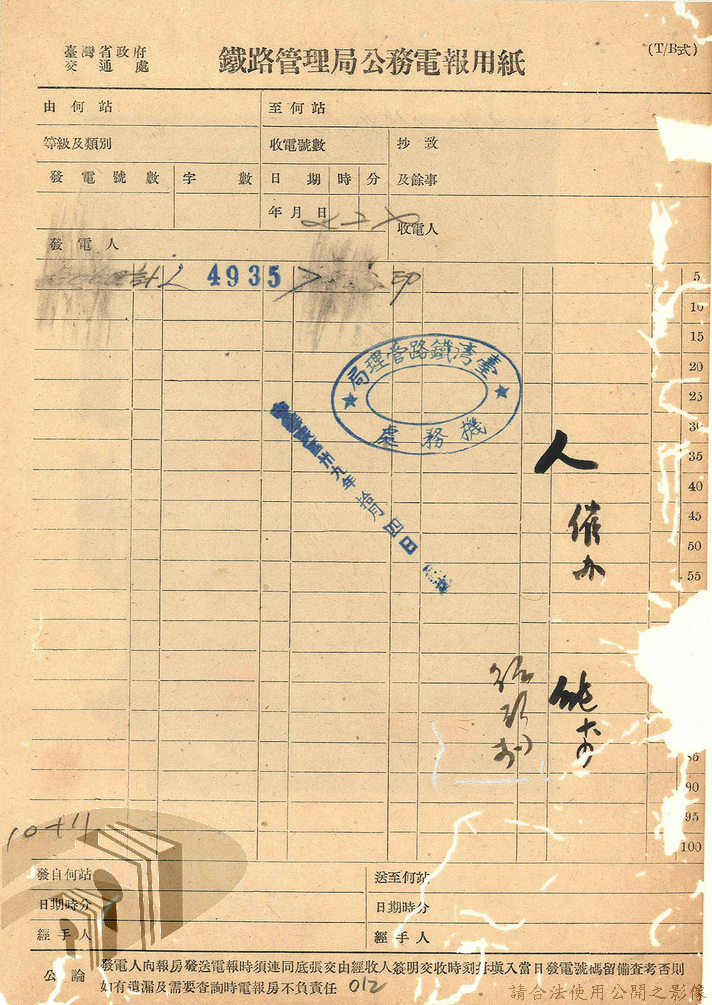 臺灣省政府
交通處
鐵路管理局公務電報用紙
(T/B式)
由何站
至何站
等級及類別
收電號數
抄致
發電號數
字數
日期
時
分
及餘事
年月日
收電人
發電人
4935
印
5
10
15
20
25
30
35
40
45
50
55
85
90
95
100
臺灣鐵路管理局
機務處
卅九年拾月四日
人
催办
10+11
發自何站
送至何站
日期時分
日期時分
經手人
經手人
公論
發電人向報房發送電報時須連同底張交由經收人簽明交收時刻并填入當日發電號碼留備查考否則
如有遺漏及需要查詢時電報房不負責任
012
請合法使用公開之影像